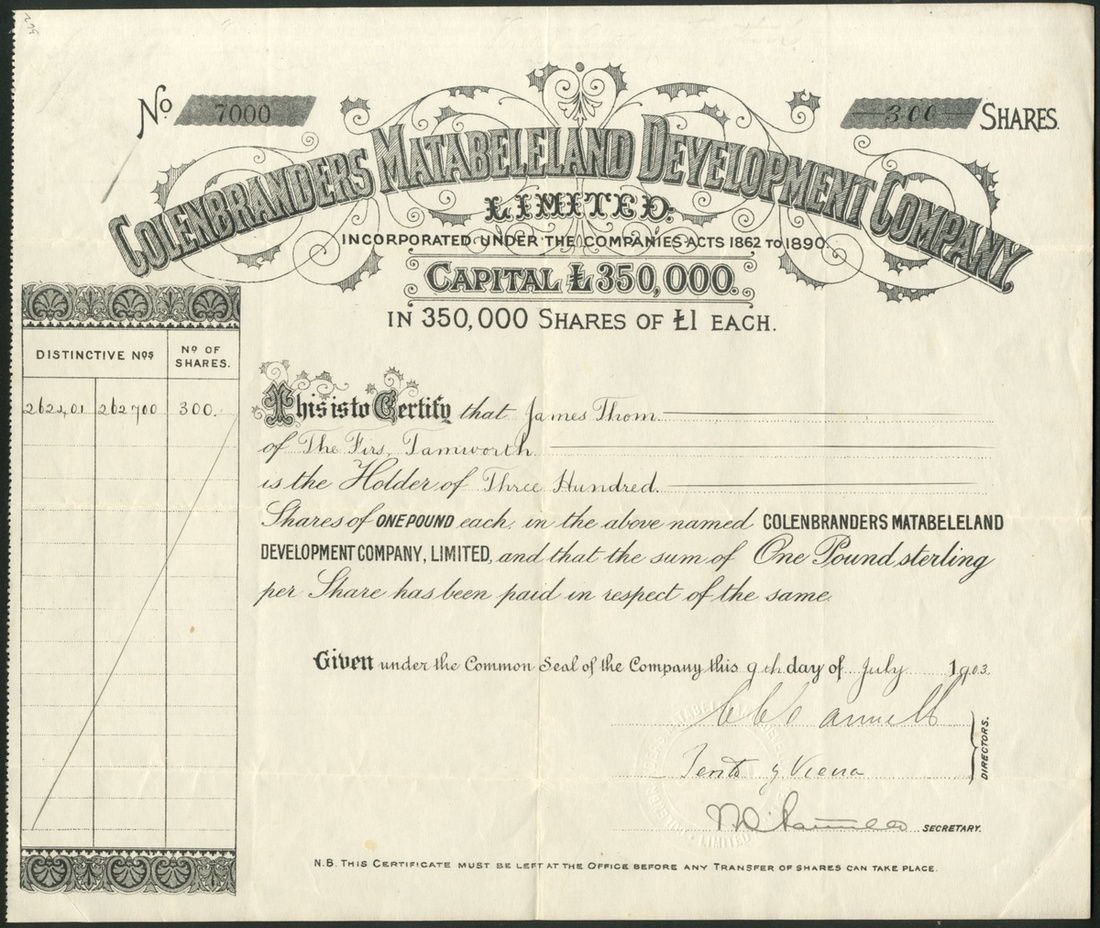 No 7000
300 SHARES.
COLENBRANDERS MATABELELAND DEVELOPMENT COMPANY
LIMITED.
INCORPORATED UNDER THE COMPANIES ACTS 1862 TO 1890.
CAPITAL £350,000.
IN 350,000 SHARES OF £1 EACH.
DISTINCTIVE NOS
NO OF SHARES.
262401 262700 300.
This is to Certify that James Thom
of The Firs, Tamworth
is the Holder of Three Hundred.
Shares of ONE POUND each, in the above named COLENBRANDERS MATABELELAND
DEVELOPMENT COMPANY, LIMITED, and that the sum of One Pound sterling
per Share has been paid in respect of the same.
Given under the Common Seal of the Company this 9th day of July 1903.
DIRECTORS.
SECRETARY.
LIMITED
N.B. THIS CERTIFICATE MUST BE LEFT AT THE OFFICE BEFORE ANY TRANSFER OF SHARES CAN TAKE PLACE.